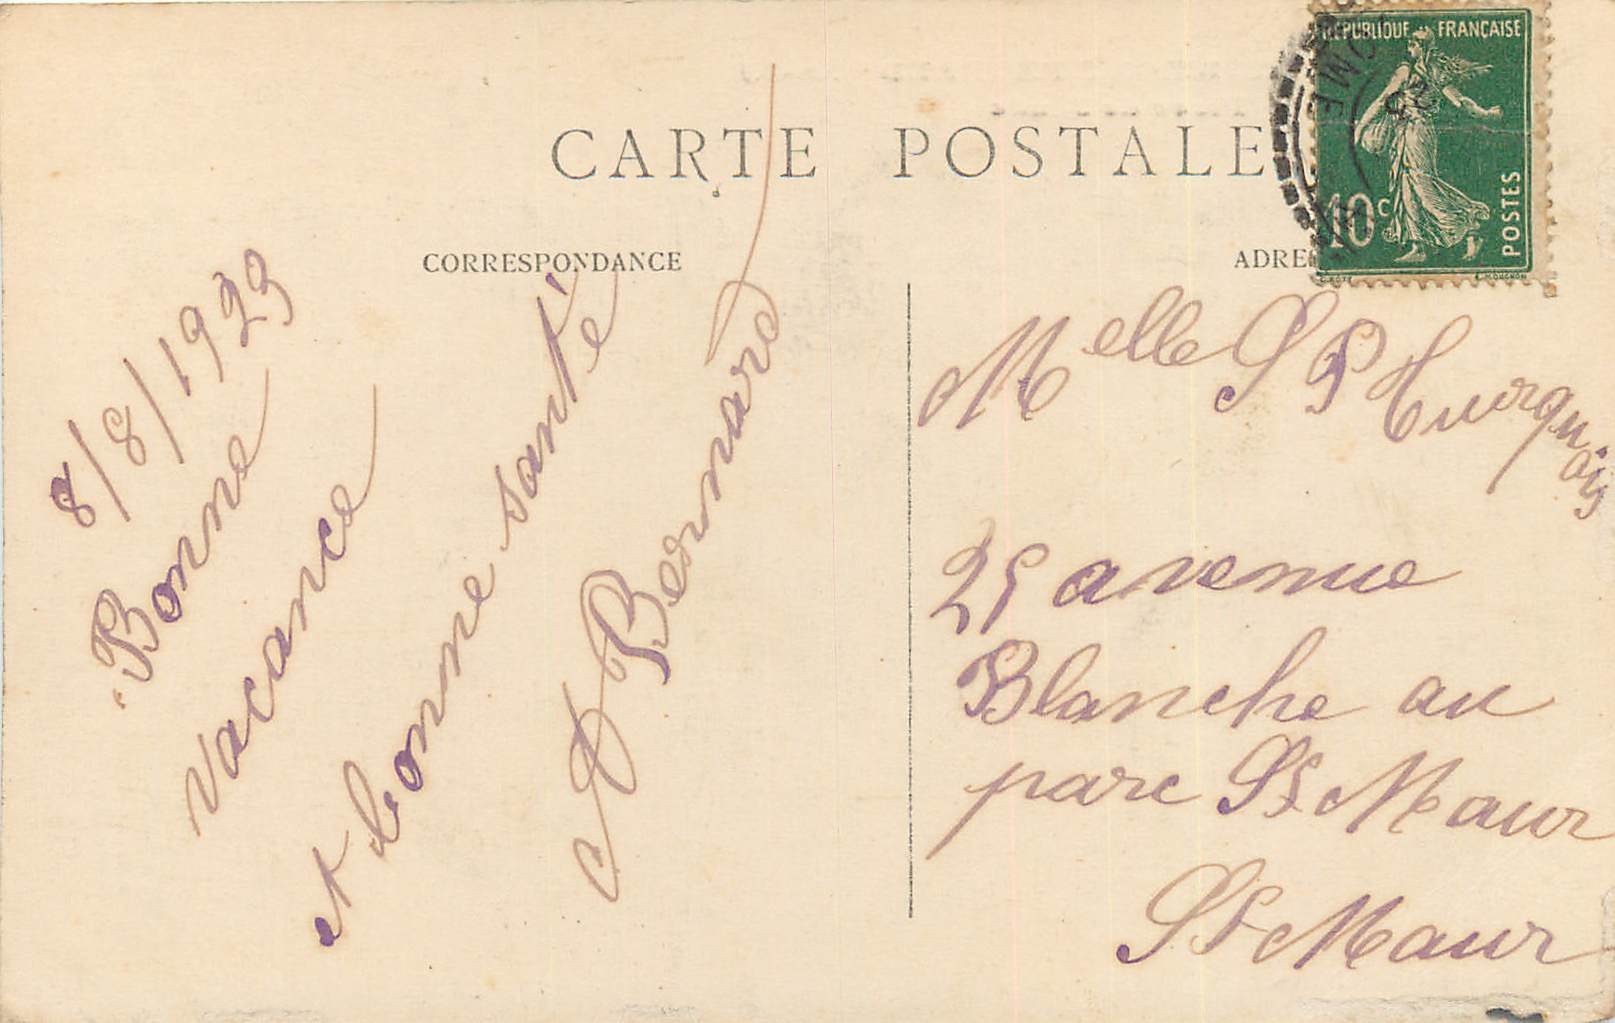 RÉPUBLIQUE FRANÇAISE
10c
POSTES
CARTE POSTALE
CORRESPONDANCE
ADRE
8/8/1923
Bonne
vacance
et bonne santé
Bernard
Melle
25 avenue
Blanche au
parc St Maur
St Maur